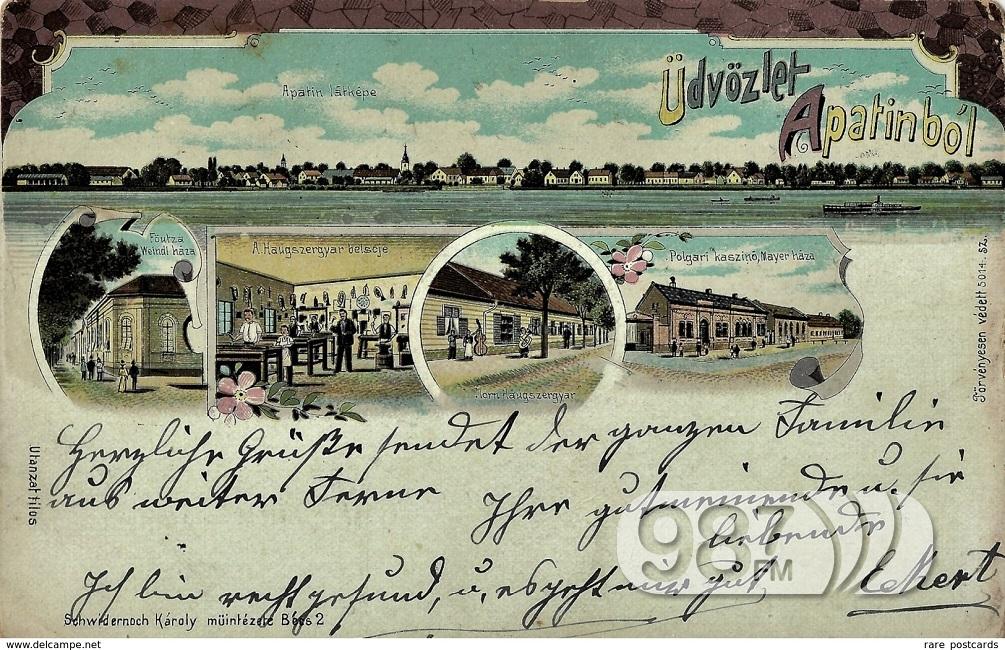 Üdvözlet
Apatinból
Apatin látképe
Főutza
Weindl háza
A. Haugszergyár belsője
Torn. Haugszergyár
Polgári kaszinó, Mayer háza
Törvényesen védett 5014. sz.
Utánzat tilos
Herzliche Grüße sendet der ganzen Familie
aus weiter Ferne
Ihre gutmeinende u. sie
liebende
Eckert
Ich bin recht gesund, u. es geht mir gut
Schwidernoch Károly műintézete Bécs 2
987
FM
www.delcampe.net
rare postcards